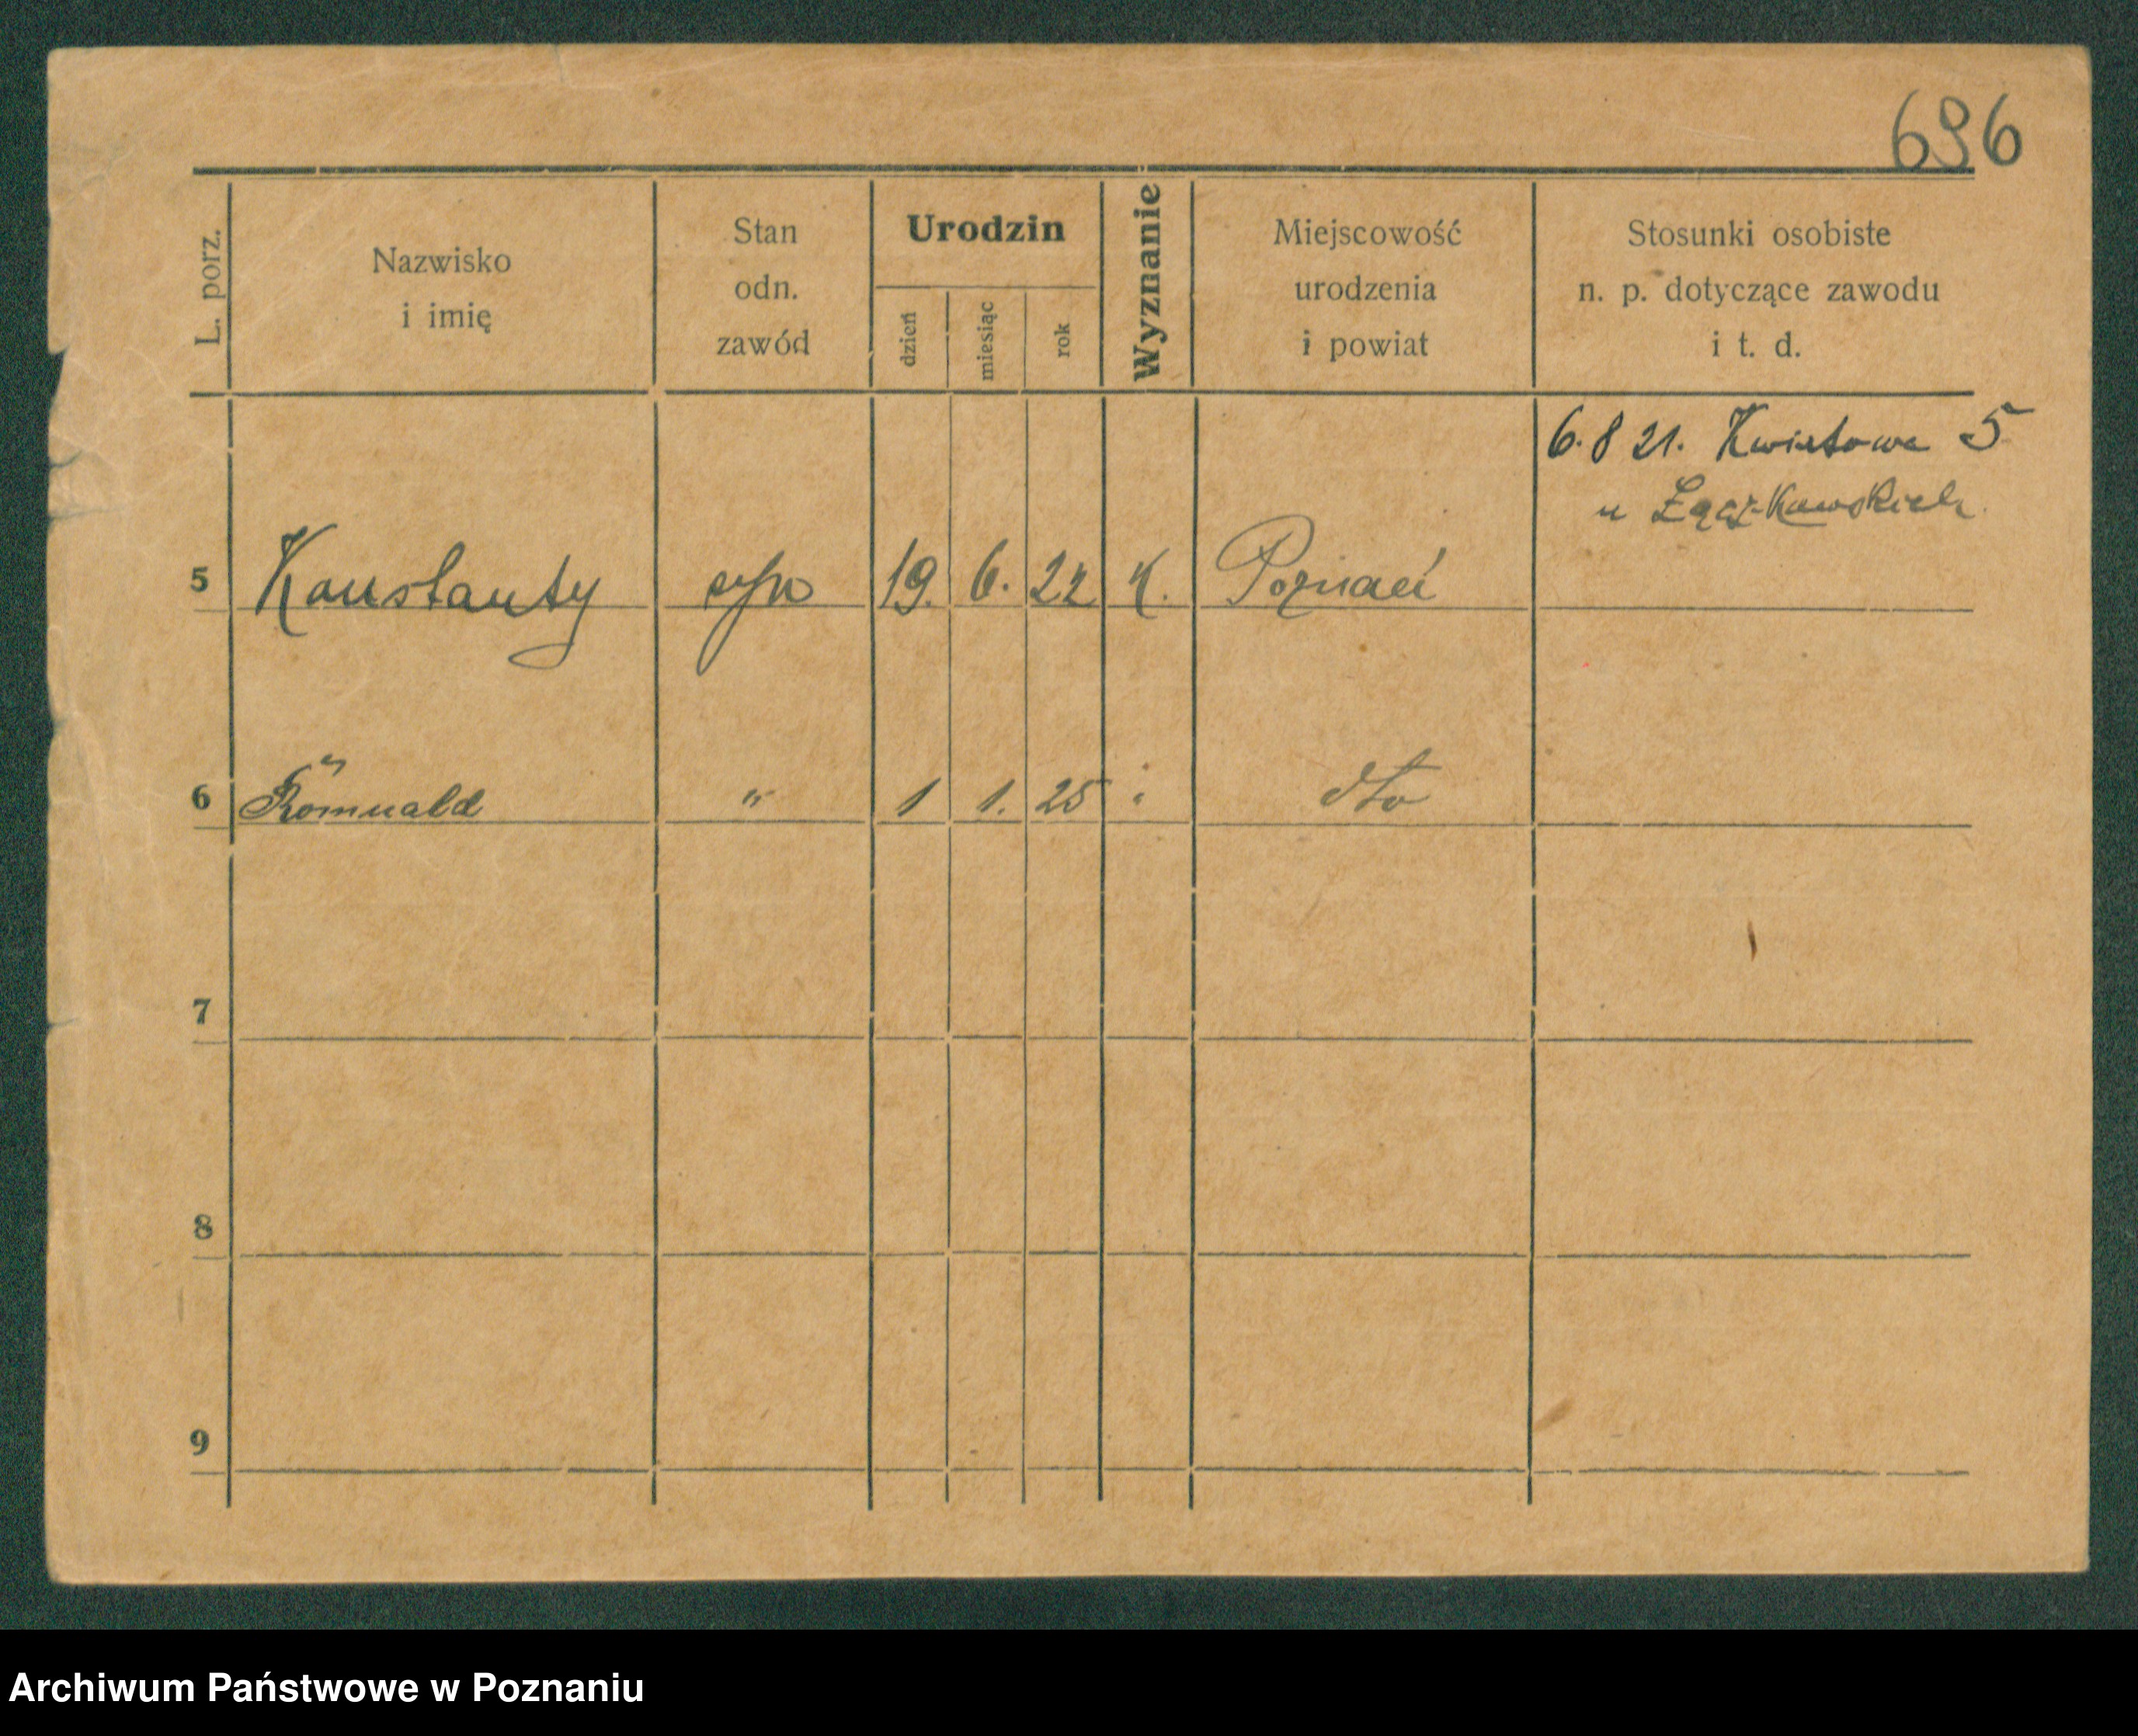 696
L. porz.
Nazwisko
i imię
Stan
odn.
zawód
Urodzin
dzień
miesiąc
rok
Wyznanie
Miejscowość
urodzenia
i powiat
Stosunki osobiste
n. p. dotyczące zawodu
i t. d.
6.8 21. Kwiatowa 5
u Łączkowskich
5 Konstanty syn 19. 6. 22 K. Poznań
6 Romuald " 1 1. 25 " dto
7
8
9
Archiwum Państwowe w Poznaniu